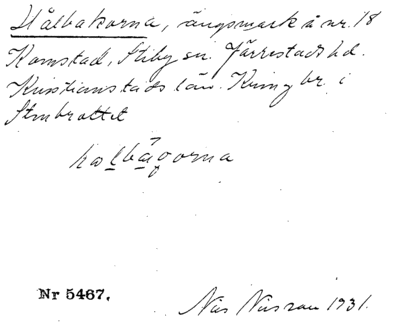 Hålbakorna, ängsmark å nr. 18
Komstad, Stiby sn. Järrestads hd.
Kristianstads län. Kring br. i
Stnbrottet
halbagorna
Nr 5467.
Nils Nilsson 1931.